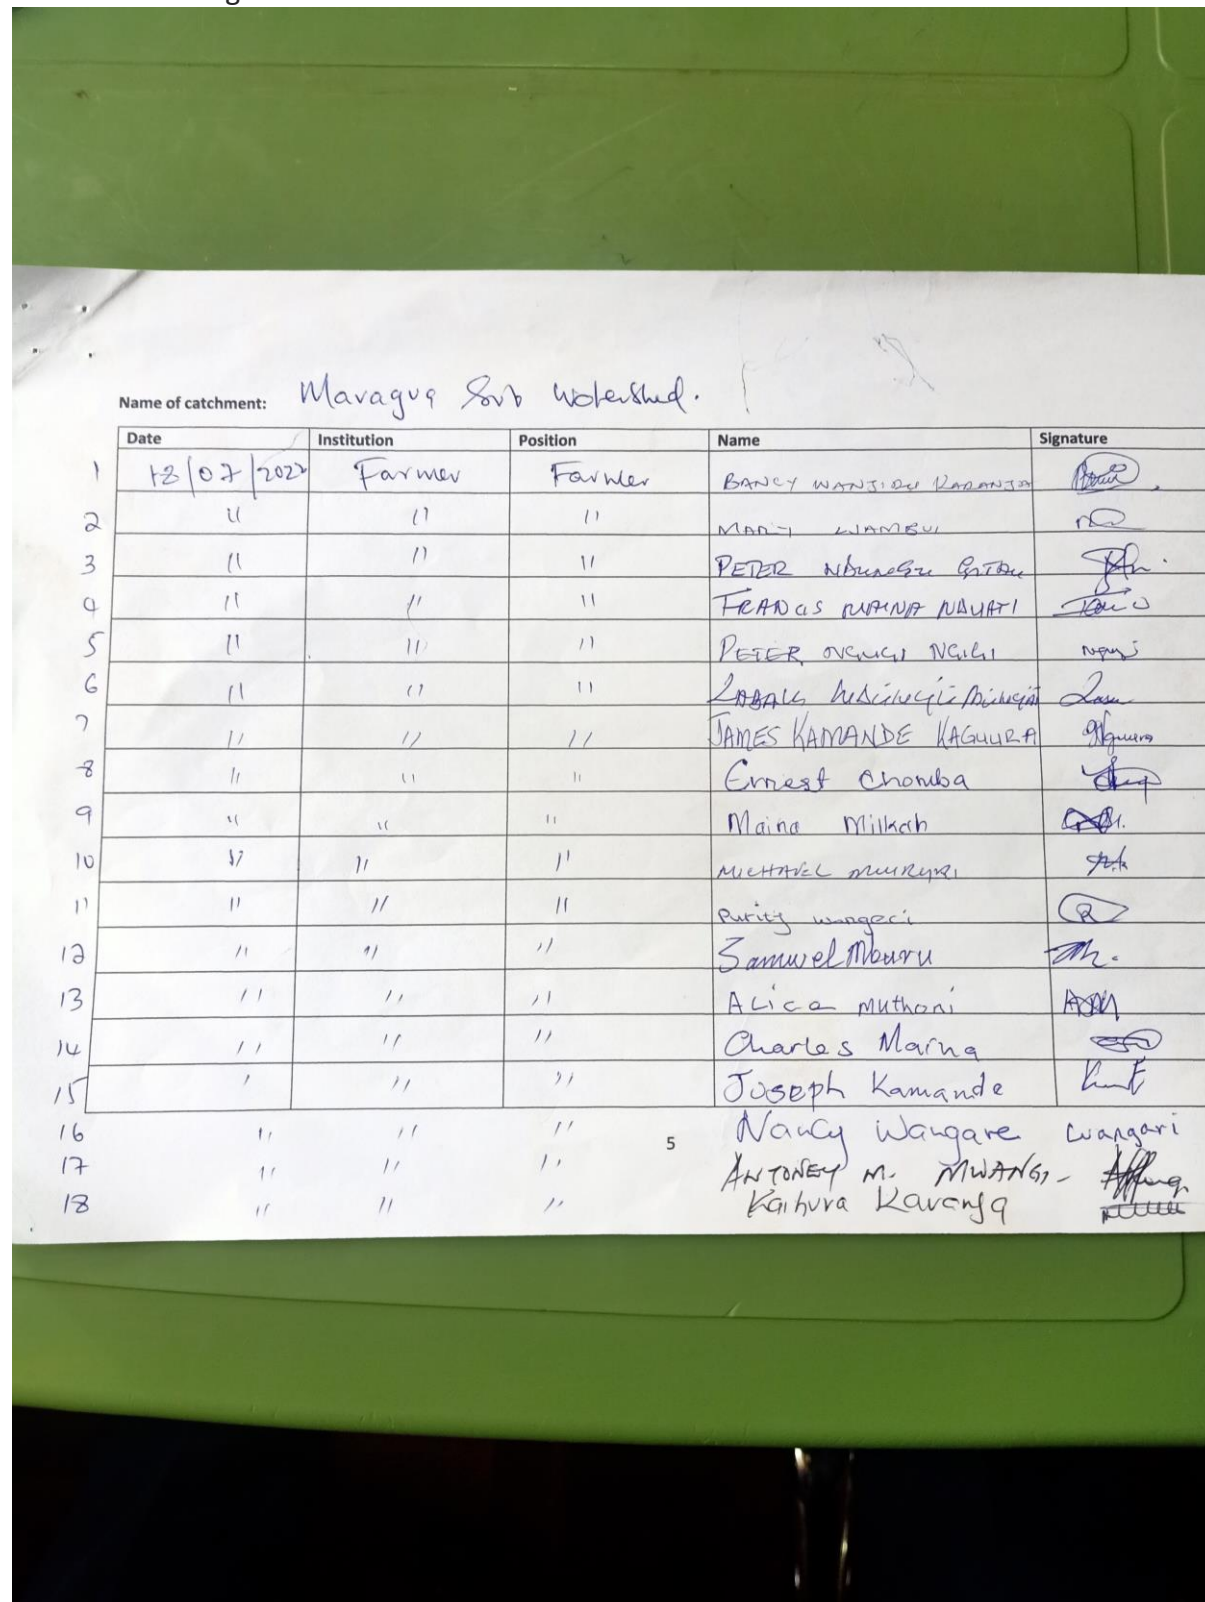 Name of catchment: Maragua Sub Watershed.
Date Institution Position Name Signature
1 18/07/2022 Farmer Farmer BANCY WANJIRU KARANJA
2 " " " MARY WAMBUI
3 " " " PETER NDUNGU GITAU
4 " " " FRANCIS MAINA
5 " " " PETER NGUGI NGIGI
6 " " "
7 " " " JAMES KAMANDE KAGUURA
8 " " " Ernest Chomba
9 " " " Maina Milkah
10 " " " MICHAEL
11 " " " Purity wangeci
12 " " " Samwel Mburu
13 " " " ALice muthoni
14 " " " Charles Maina
15 ' " " Joseph Kamande
16 " " " Nancy Wangare wangari
5
17 " " " ANTONEY M. MWANGI-
18 " " " Kaihura Karanja